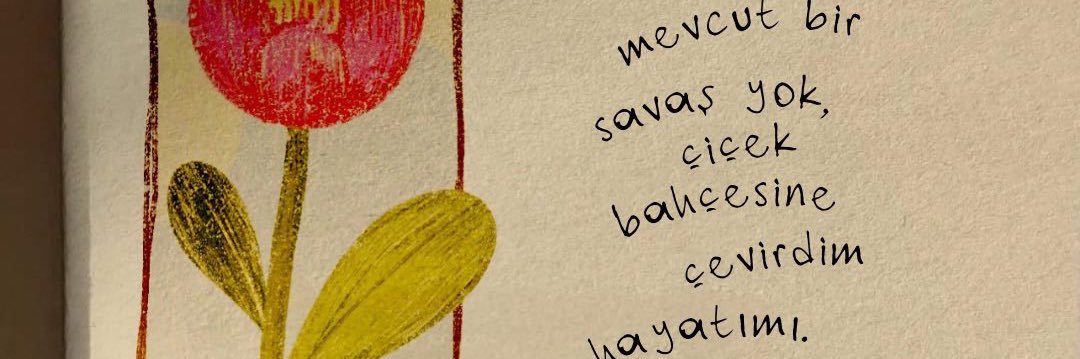 mevcut bir
savaş yok,
çiçek
bahçesine
çevirdim
hayatımı.